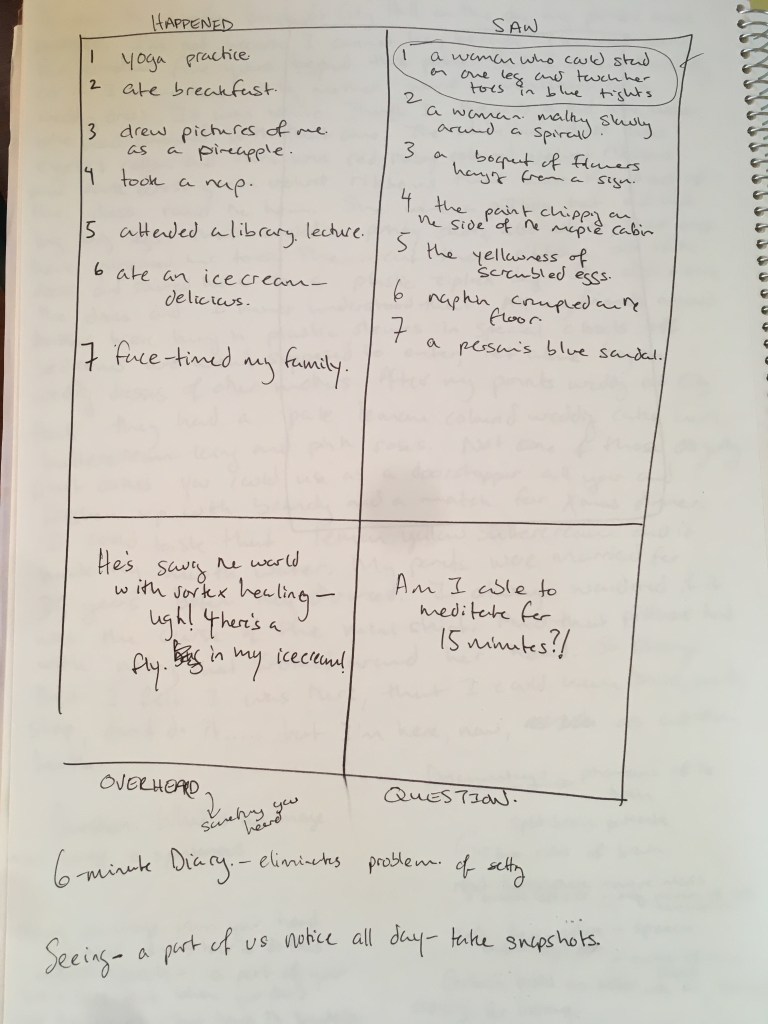 HAPPENED
1 yoga practice
2 ate breakfast.
3 drew pictures of me
as a pineapple.
4 took a nap.
5 attended a library lecture.
6 ate an icecream—
delicious.
7 face-timed my family.
SAW
1 a woman who could stand
on one leg and touch her
toes in blue tights
2 a woman slowly
around a spiral.
3 a boquet of flowers
from a sign.
4 the paint on
the side of the maple cabin
5 the yellowness of
scrambled eggs.
6 napkin crumpled on the
floor.
7 a person's blue sandal.
He's the world
with vortex healing—
ugh! There's a
fly. in my icecream!
OVERHEARD
something you
heard
Am I able to
meditate for
15 minutes?!
QUESTION.
6-minute Diary. — eliminates problem. of
Seeing— a part of us notice all day— take snapshots.